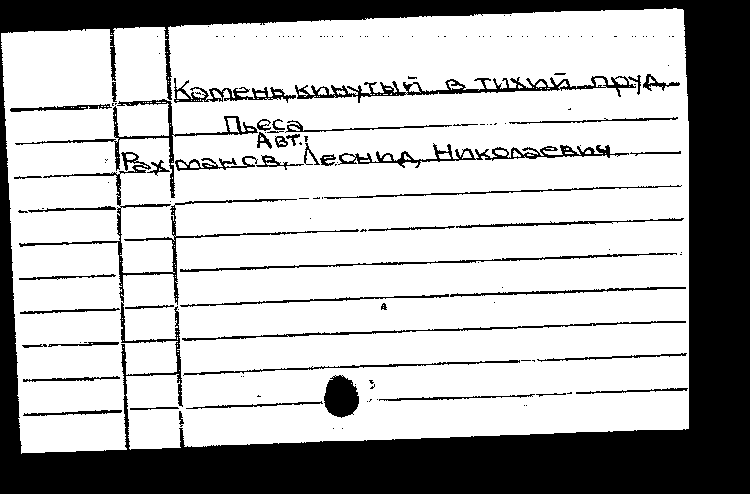 Камень, кинутый в тихий пруд.
Пьеса
Авт.:
Рахманов, Леонид Николаевич